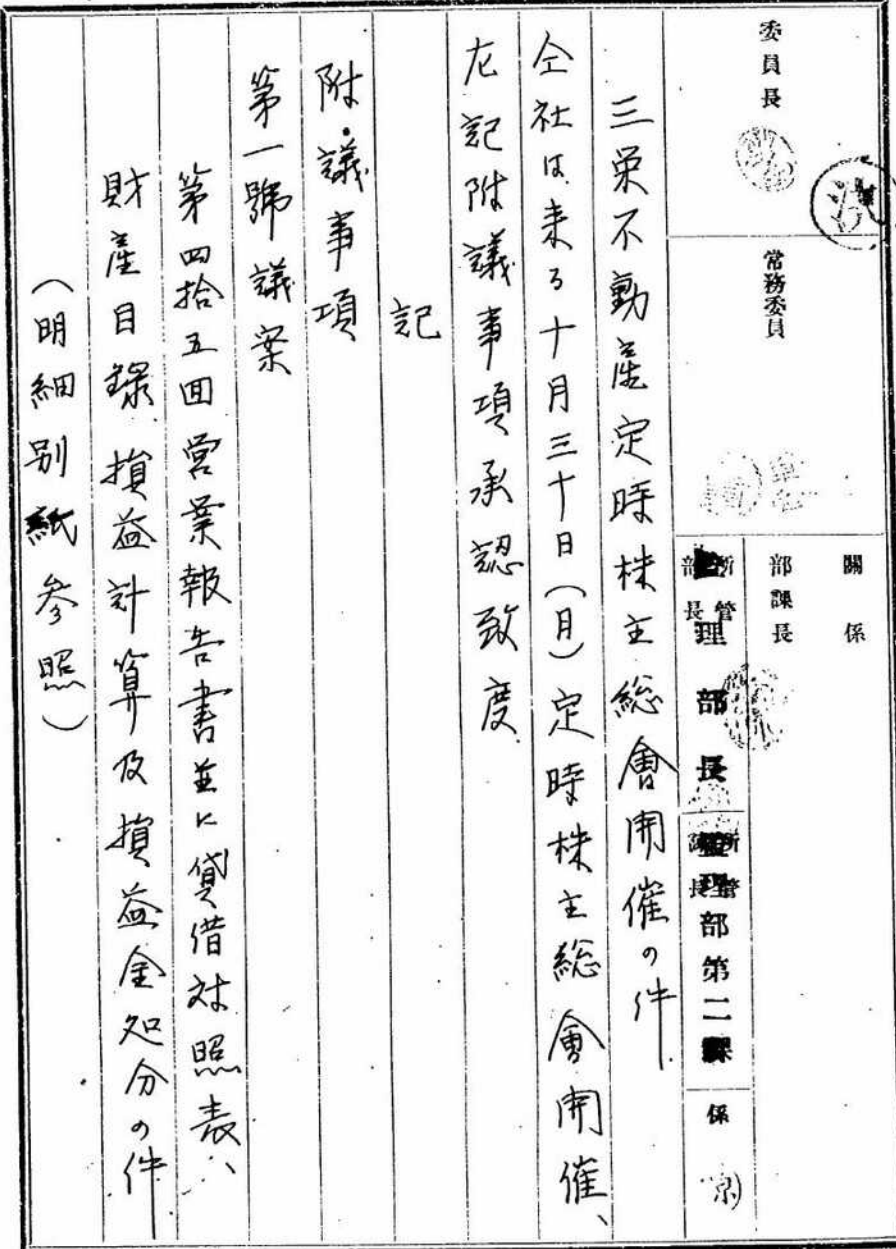 委員長
常務委員
關係
部課長
所管部長
管理部長
所管課長
管理部第二課
係
三栄不動産定時株主総會開催の件
仝社は来る十月三十日(月)定時株主総會開催、
左記附議事項承認致度
記
附議事項
第一號議案
第四拾五回営業報告書並に貸借対照表、
財産目録、損益計算及損益金処分の件
(明細別紙参照)